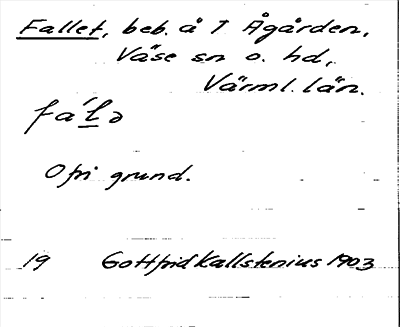 Fallet, beb. å 7 Ågården,
Väse sn o. hd,
Värml. län.
fa´lə
Ofri grund.
19 Gottfrid Kallstenius 1903